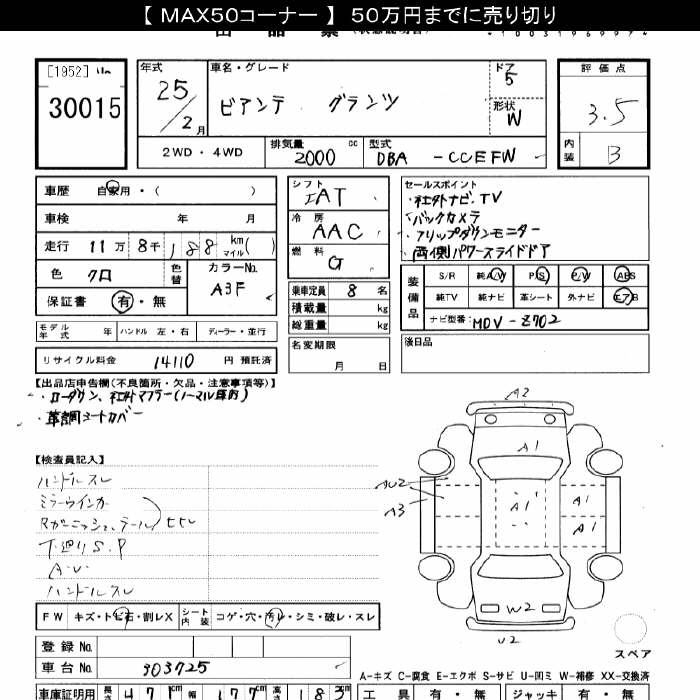 【 MAX50コーナー 】 50万円までに売り切り
[1952]
30015
年式 車名・グレード ドア 評価点
25/2月 ビアンテ グランツ 5 3.5
形状 W
内装 B
2WD・4WD 排気量 2000 cc 型式 DBA -CCEFW
車歴 自家用・( )
車検 年 月
走行 11万 8千188 km マイル( )
色 クロ 色替 カラーNo. A3F
保証書 有・無
モデル年式 年 ハンドル 左・右 ディーラー・並行
リサイクル料金 14110 円 預託済
シフト IAT
冷房 AAC
燃料 G
乗車定員 8 名
積載量 kg
総重量 kg
名変期限
月 日
セールスポイント
・社外ナビ.TV
・バックカメラ
・フリップダウンモニター
・両側パワースライドドア
装備品 S/R 純A/W P/S P/W ABS
純TV 純ナビ 革シート 外ナビ エアB
ナビ型番: MDV-Z702
後日品
【出品店申告欄(不良箇所・欠品・注意事項等)】
・ローダウン、社外マフラー(ノーマル無)
・革調シートカバー
【検査員記入】
ハンドルスレ
ミラーウインカー
Rガーニッシュ、テール ヒビ
下廻りS.P
A・U
ハンドルスレ
FW キズ・トビ石・割レX シート内装 コゲ・穴・汚レ・シミ・破レ・スレ
登録No.
車台No. 303725
車庫証明用 長さ 471cm 幅 177cm 高さ 183cm
A2
A1
AU2
A3
A1
A1
A1
W2
U2
スペア
A-キズ C-腐食 E-エクボ S-サビ U-凹ミ W-補修 XX-交換済
工具 有・無 ジャッキ 有・無